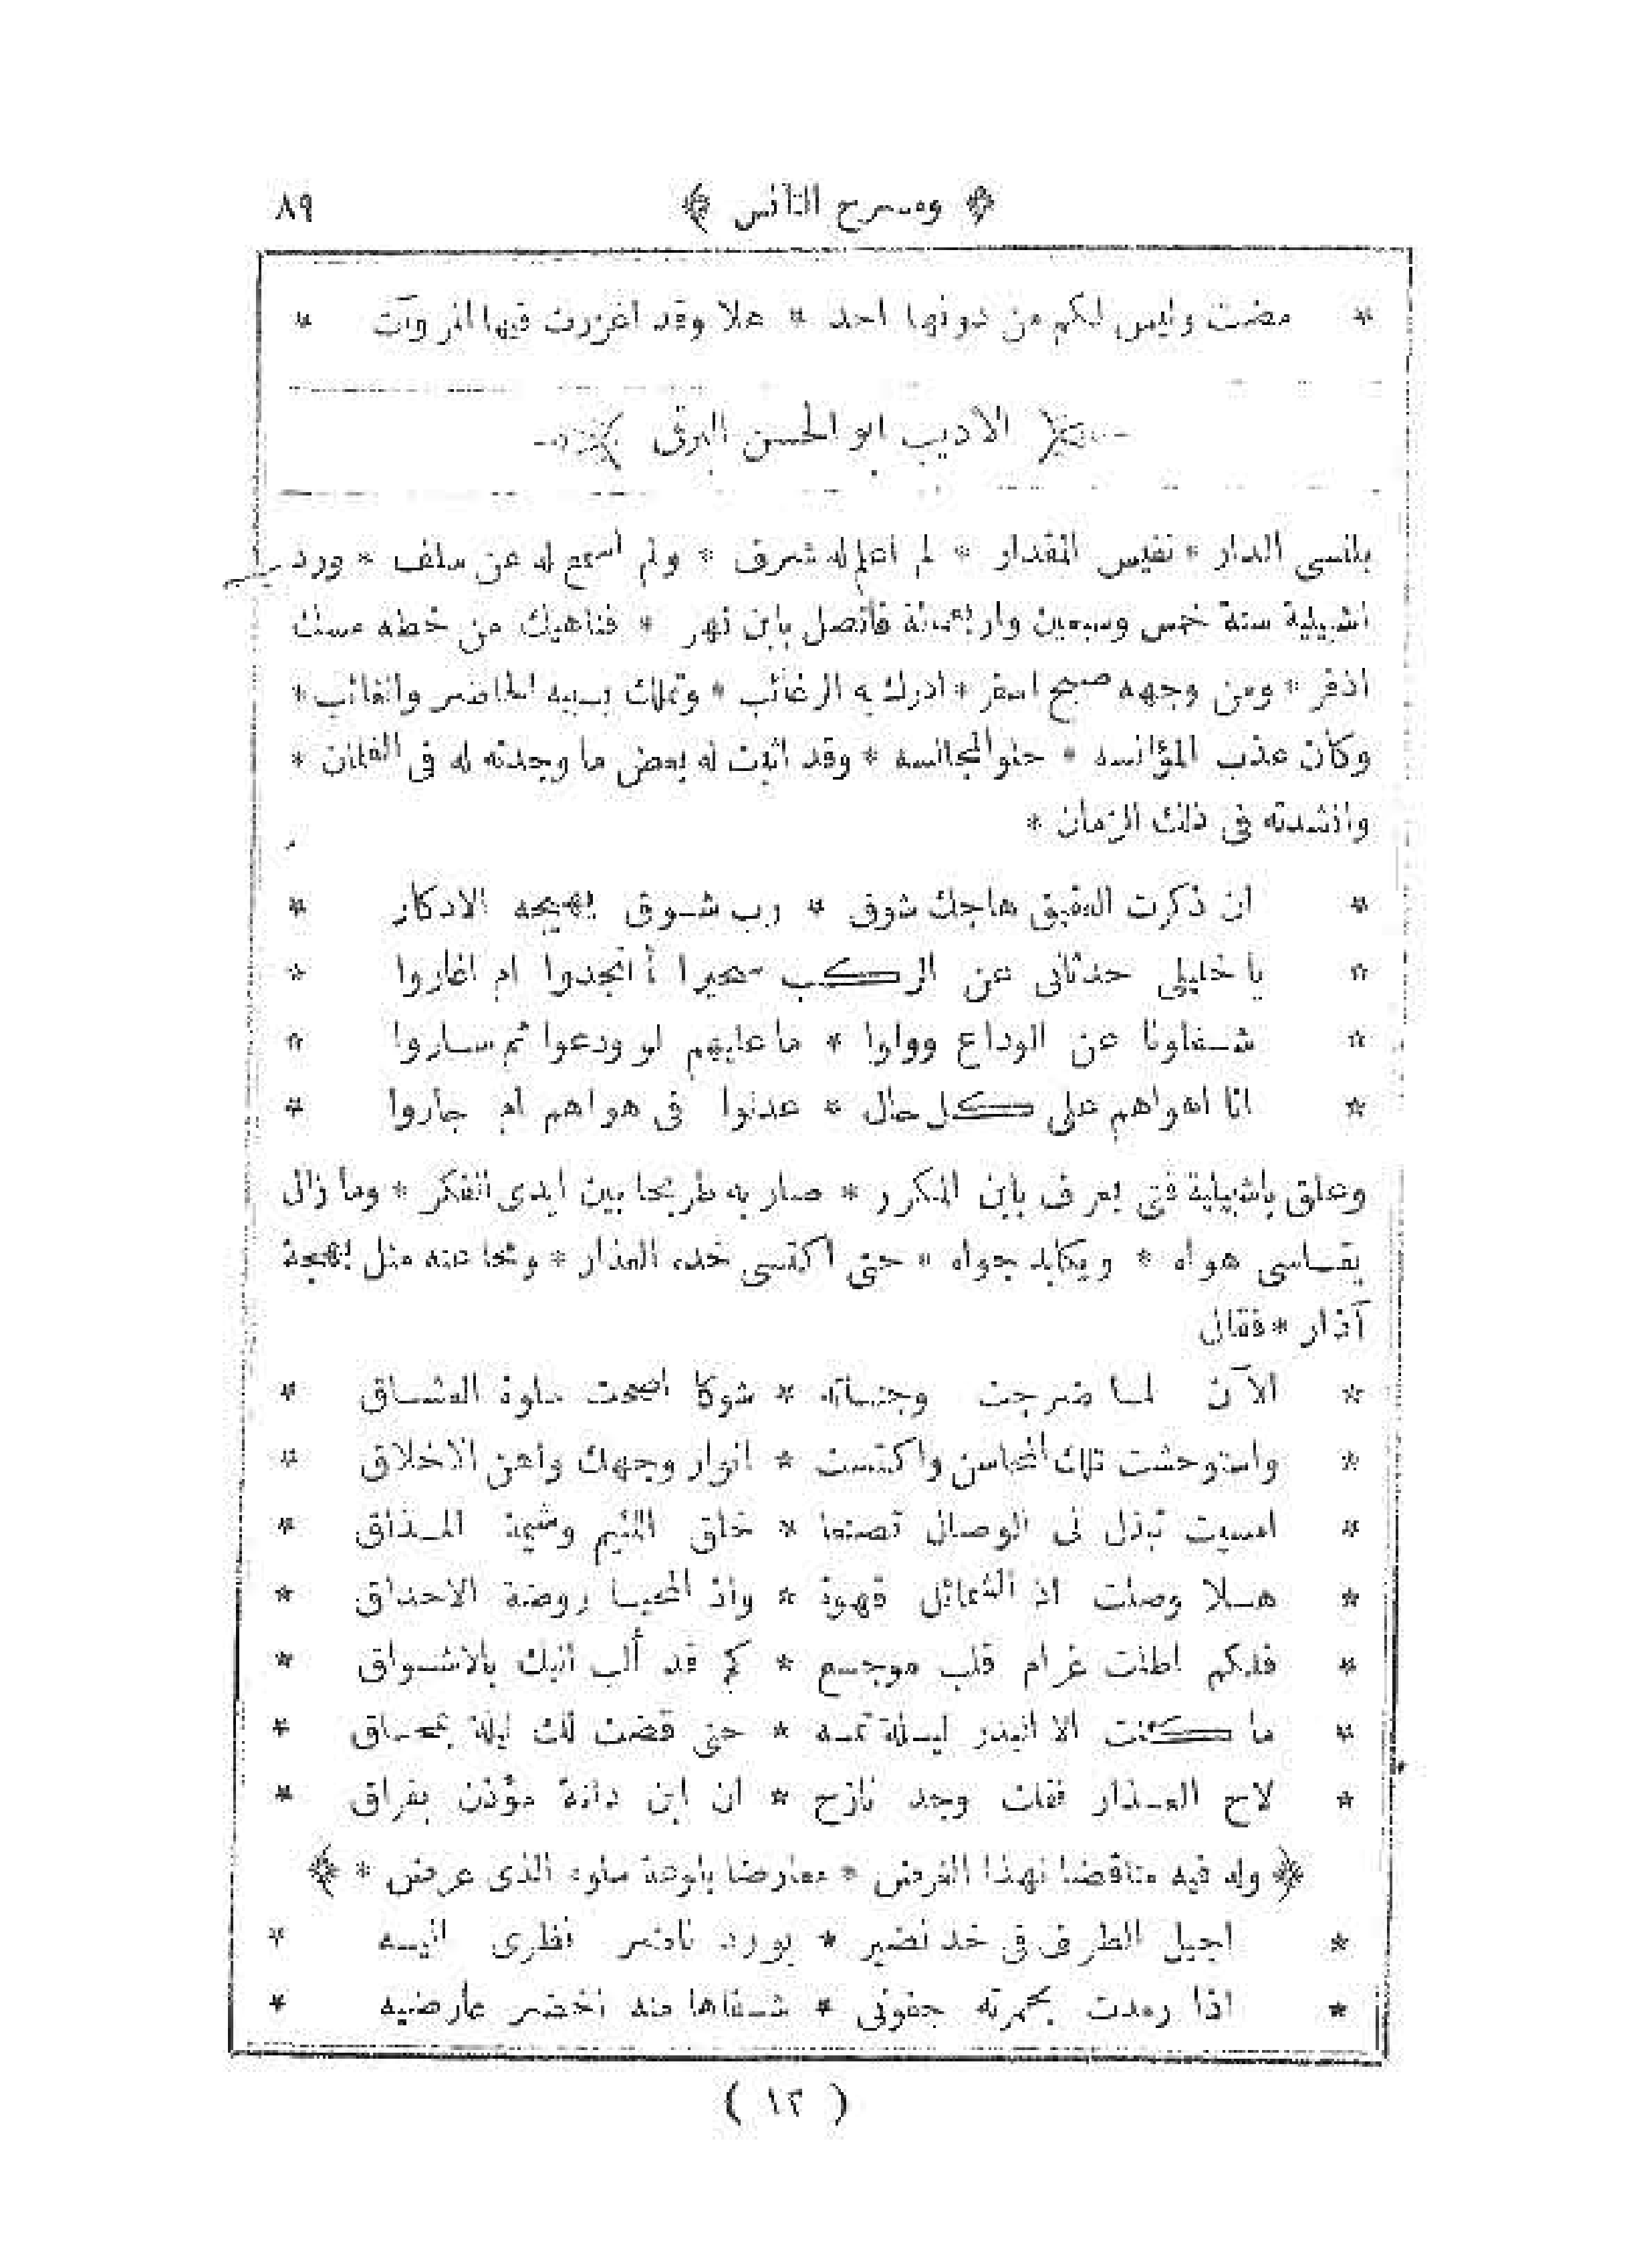 ﴿ ومسرح التأنس ﴾ ٨٩
* مضت وليس لكم من دونها احد * علا وقد اغزرت فيها المروآت *
﴿ الاديب ابو الحسن البرقى ﴾
بلنسى الدار * نفيس المقدار * لم اعلم له شرف * ولم اسمع له عن سلف * ورد
اشبيلية سنة خمس وسبعين واربعمائة فاتصل بابن زهر * فناهيك من خطه مسك
اذفر * ومن وجهه صبح اسفر * ادرك به الرغائب * وتملك بسببه الحاضر والغائب *
وكان عذب المؤانسه * حلو المجالسه * وقد اثبت له بعض ما وجدته له فى الغلمان *
وانشدته فى ذلك الزمان *
* ان ذكرت العقيق هاجك شوق * رب شوق يهيجه الادكار *
* يا خليلى حدثانى عن الركب سحيرا أ انجدوا ام اغاروا *
* شغلونا عن الوداع وولوا * ما عليهم لو ودعوا ثم ساروا *
* انا اهواهم على كل حال * عدلوا فى هواهم ام جاروا *
وعلق باشبيلية فتى يعرف بابن المكرر * صار به طريحا بين ايدى الفكر * وما زال
يقاسى هواه * ويكابد جواه * حتى اكتسى خده العذار * ومحا عنه مثل بهجة
آذار * فقال
* الآن لما ضرجت وجناته * شوكا اضحت سلوة العشاق *
* واستوحشت تلك المحاسن واكتست * انوار وجهك واهن الاخلاق *
* امسيت تبذل لى الوصال تصنعا * خلق اللئيم وشيمة المذاق *
* هلا وصلت اذ الشمائل قهوة * واذ المحيا روضة الاحداق *
* فلكم اطلت غرام قلب موجع * كم قد ألب اليك بالاشواق *
* ما كنت الا البدر ليلة تمه * حتى قضت لك ليلة بمحاق *
* لاح العذار فقلت وجد نازح * ان ابن داية مؤذن بفراق *
﴿ وله فيه مناقضا لهذا الغرض * معارضا بلوعة سلوه الذى عرض * ﴾
* اجيل الطرف فى خد نضير * يورد ناضر نظرى اليه *
* اذا رمدت بحمرته جفونى * شفاها منه اخضر عارضيه *
( ١٢ )